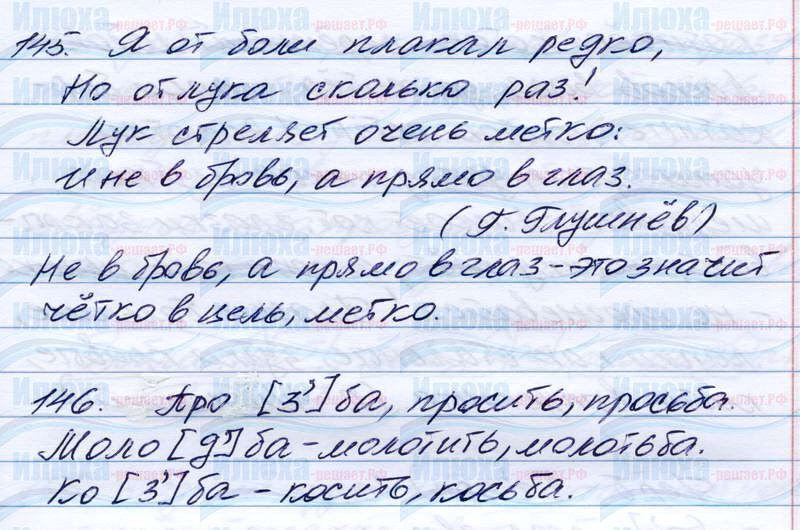 145. Я от боли плакал редко,
Но от лука сколько раз!
Лук стреляет очень метко:
И не в бровь, а прямо в глаз.
(Г. Глушнёв)
Не в бровь, а прямо в глаз - это значит
чётко в цель, метко.
146. Про [З'] ба, просить, просьба.
Моло [д'] ба - молотить, молотьба.
Ко [З'] ба - косить, косьба.